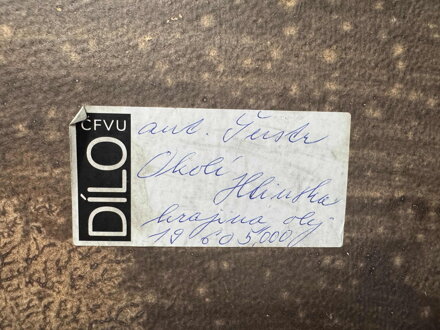 ČFVU
DÍLO
aut. Šustr
Okolí
Hlinska
krajina olej
19 605,000